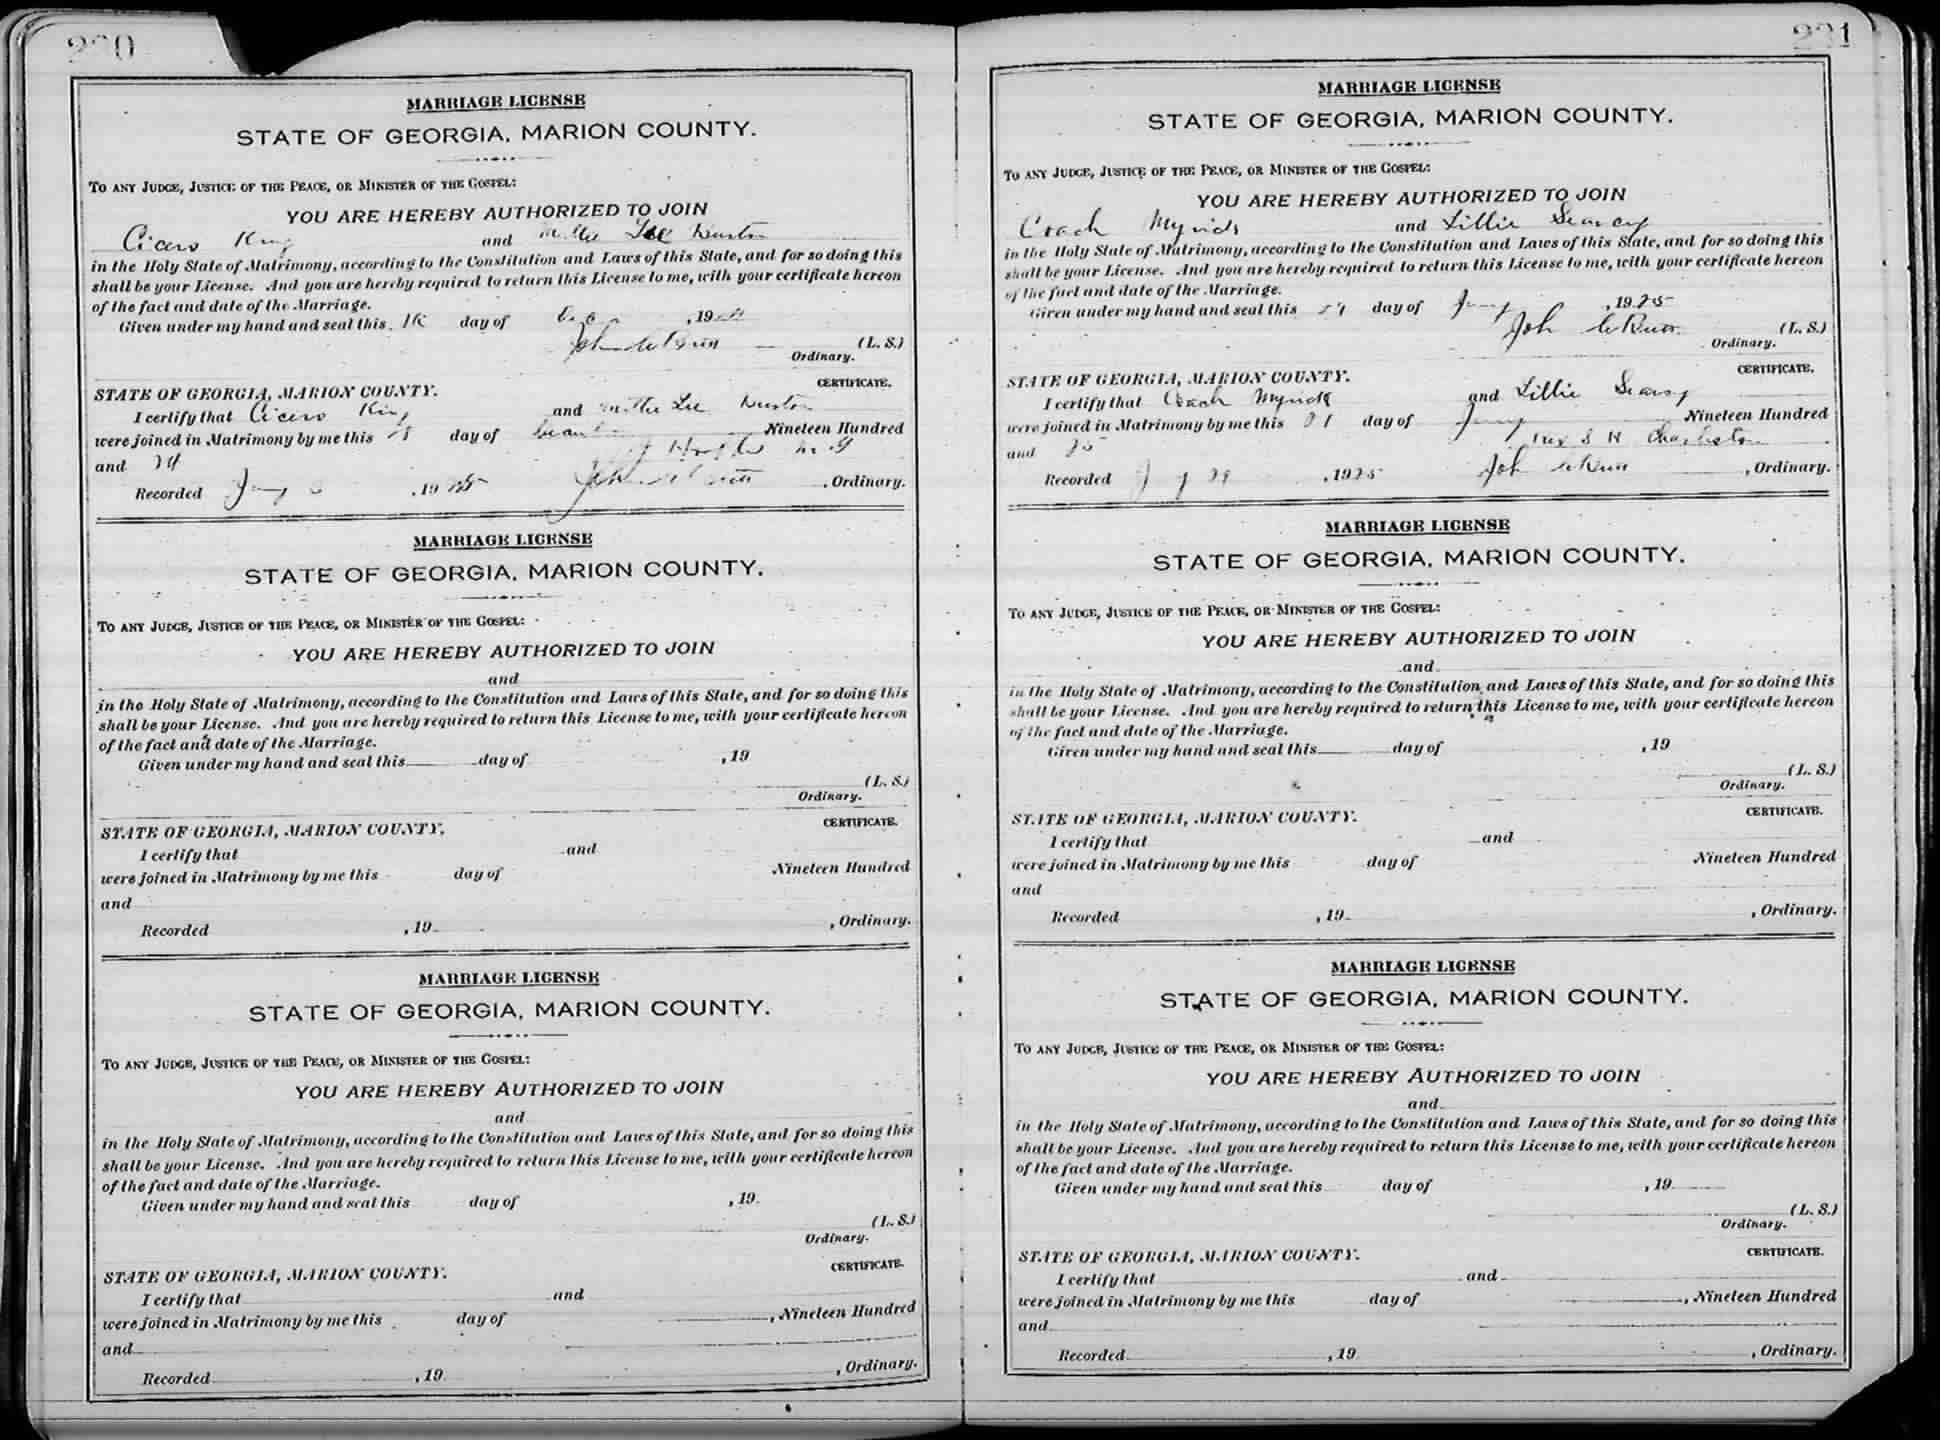 230
MARRIAGE LICENSE
STATE OF GEORGIA, MARION COUNTY.
TO ANY JUDGE, JUSTICE OF THE PEACE, OR MINISTER OF THE GOSPEL:
YOU ARE HEREBY AUTHORIZED TO JOIN
Cicero King and Mittie Lee
in the Holy State of Matrimony, according to the Constitution and Laws of this State, and for so doing this
shall be your License. And you are hereby required to return this License to me, with your certificate hereon
of the fact and date of the Marriage.
Given under my hand and seal this day of , 19
John (L. S.)
Ordinary.
CERTIFICATE.
STATE OF GEORGIA, MARION COUNTY.
I certify that Cicero King and Mittie Lee
were joined in Matrimony by me this day of Nineteen Hundred
and 24
Recorded , 1925 John , Ordinary.
MARRIAGE LICENSE
STATE OF GEORGIA, MARION COUNTY.
TO ANY JUDGE, JUSTICE OF THE PEACE, OR MINISTER OF THE GOSPEL:
YOU ARE HEREBY AUTHORIZED TO JOIN
and
in the Holy State of Matrimony, according to the Constitution and Laws of this State, and for so doing this
shall be your License. And you are hereby required to return this License to me, with your certificate hereon
of the fact and date of the Marriage.
Given under my hand and seal this day of , 19
(L. S.)
Ordinary.
CERTIFICATE.
STATE OF GEORGIA, MARION COUNTY.
I certify that and
were joined in Matrimony by me this day of Nineteen Hundred
and
Recorded , 19 , Ordinary.
MARRIAGE LICENSE
STATE OF GEORGIA, MARION COUNTY.
TO ANY JUDGE, JUSTICE OF THE PEACE, OR MINISTER OF THE GOSPEL:
YOU ARE HEREBY AUTHORIZED TO JOIN
and
in the Holy State of Matrimony, according to the Constitution and Laws of this State, and for so doing this
shall be your License. And you are hereby required to return this License to me, with your certificate hereon
of the fact and date of the Marriage.
Given under my hand and seal this day of , 19
(L. S.)
Ordinary.
CERTIFICATE.
STATE OF GEORGIA, MARION COUNTY.
I certify that and
were joined in Matrimony by me this day of , Nineteen Hundred
and
Recorded , 19 , Ordinary.
231
MARRIAGE LICENSE
STATE OF GEORGIA, MARION COUNTY.
TO ANY JUDGE, JUSTICE OF THE PEACE, OR MINISTER OF THE GOSPEL:
YOU ARE HEREBY AUTHORIZED TO JOIN
Coach Myrick and Lillie Searcy
in the Holy State of Matrimony, according to the Constitution and Laws of this State, and for so doing this
shall be your License. And you are hereby required to return this License to me, with your certificate hereon
of the fact and date of the Marriage.
Given under my hand and seal this day of , 1925
John (L. S.)
Ordinary.
CERTIFICATE.
STATE OF GEORGIA, MARION COUNTY.
I certify that Coach Myrick and Lillie Searcy
were joined in Matrimony by me this day of Nineteen Hundred
and 25 Charleston
Recorded , 1925 John , Ordinary.
MARRIAGE LICENSE
STATE OF GEORGIA, MARION COUNTY.
TO ANY JUDGE, JUSTICE OF THE PEACE, OR MINISTER OF THE GOSPEL:
YOU ARE HEREBY AUTHORIZED TO JOIN
and
in the Holy State of Matrimony, according to the Constitution and Laws of this State, and for so doing this
shall be your License. And you are hereby required to return this License to me, with your certificate hereon
of the fact and date of the Marriage.
Given under my hand and seal this day of , 19
(L. S.)
Ordinary.
CERTIFICATE.
STATE OF GEORGIA, MARION COUNTY.
I certify that and
were joined in Matrimony by me this day of Nineteen Hundred
and
Recorded , 19 , Ordinary.
MARRIAGE LICENSE
STATE OF GEORGIA, MARION COUNTY.
TO ANY JUDGE, JUSTICE OF THE PEACE, OR MINISTER OF THE GOSPEL:
YOU ARE HEREBY AUTHORIZED TO JOIN
and
in the Holy State of Matrimony, according to the Constitution and Laws of this State, and for so doing this
shall be your License. And you are hereby required to return this License to me, with your certificate hereon
of the fact and date of the Marriage.
Given under my hand and seal this day of , 19
(L. S.)
Ordinary.
CERTIFICATE.
STATE OF GEORGIA, MARION COUNTY.
I certify that and
were joined in Matrimony by me this day of , Nineteen Hundred
and
Recorded , 19 , Ordinary.